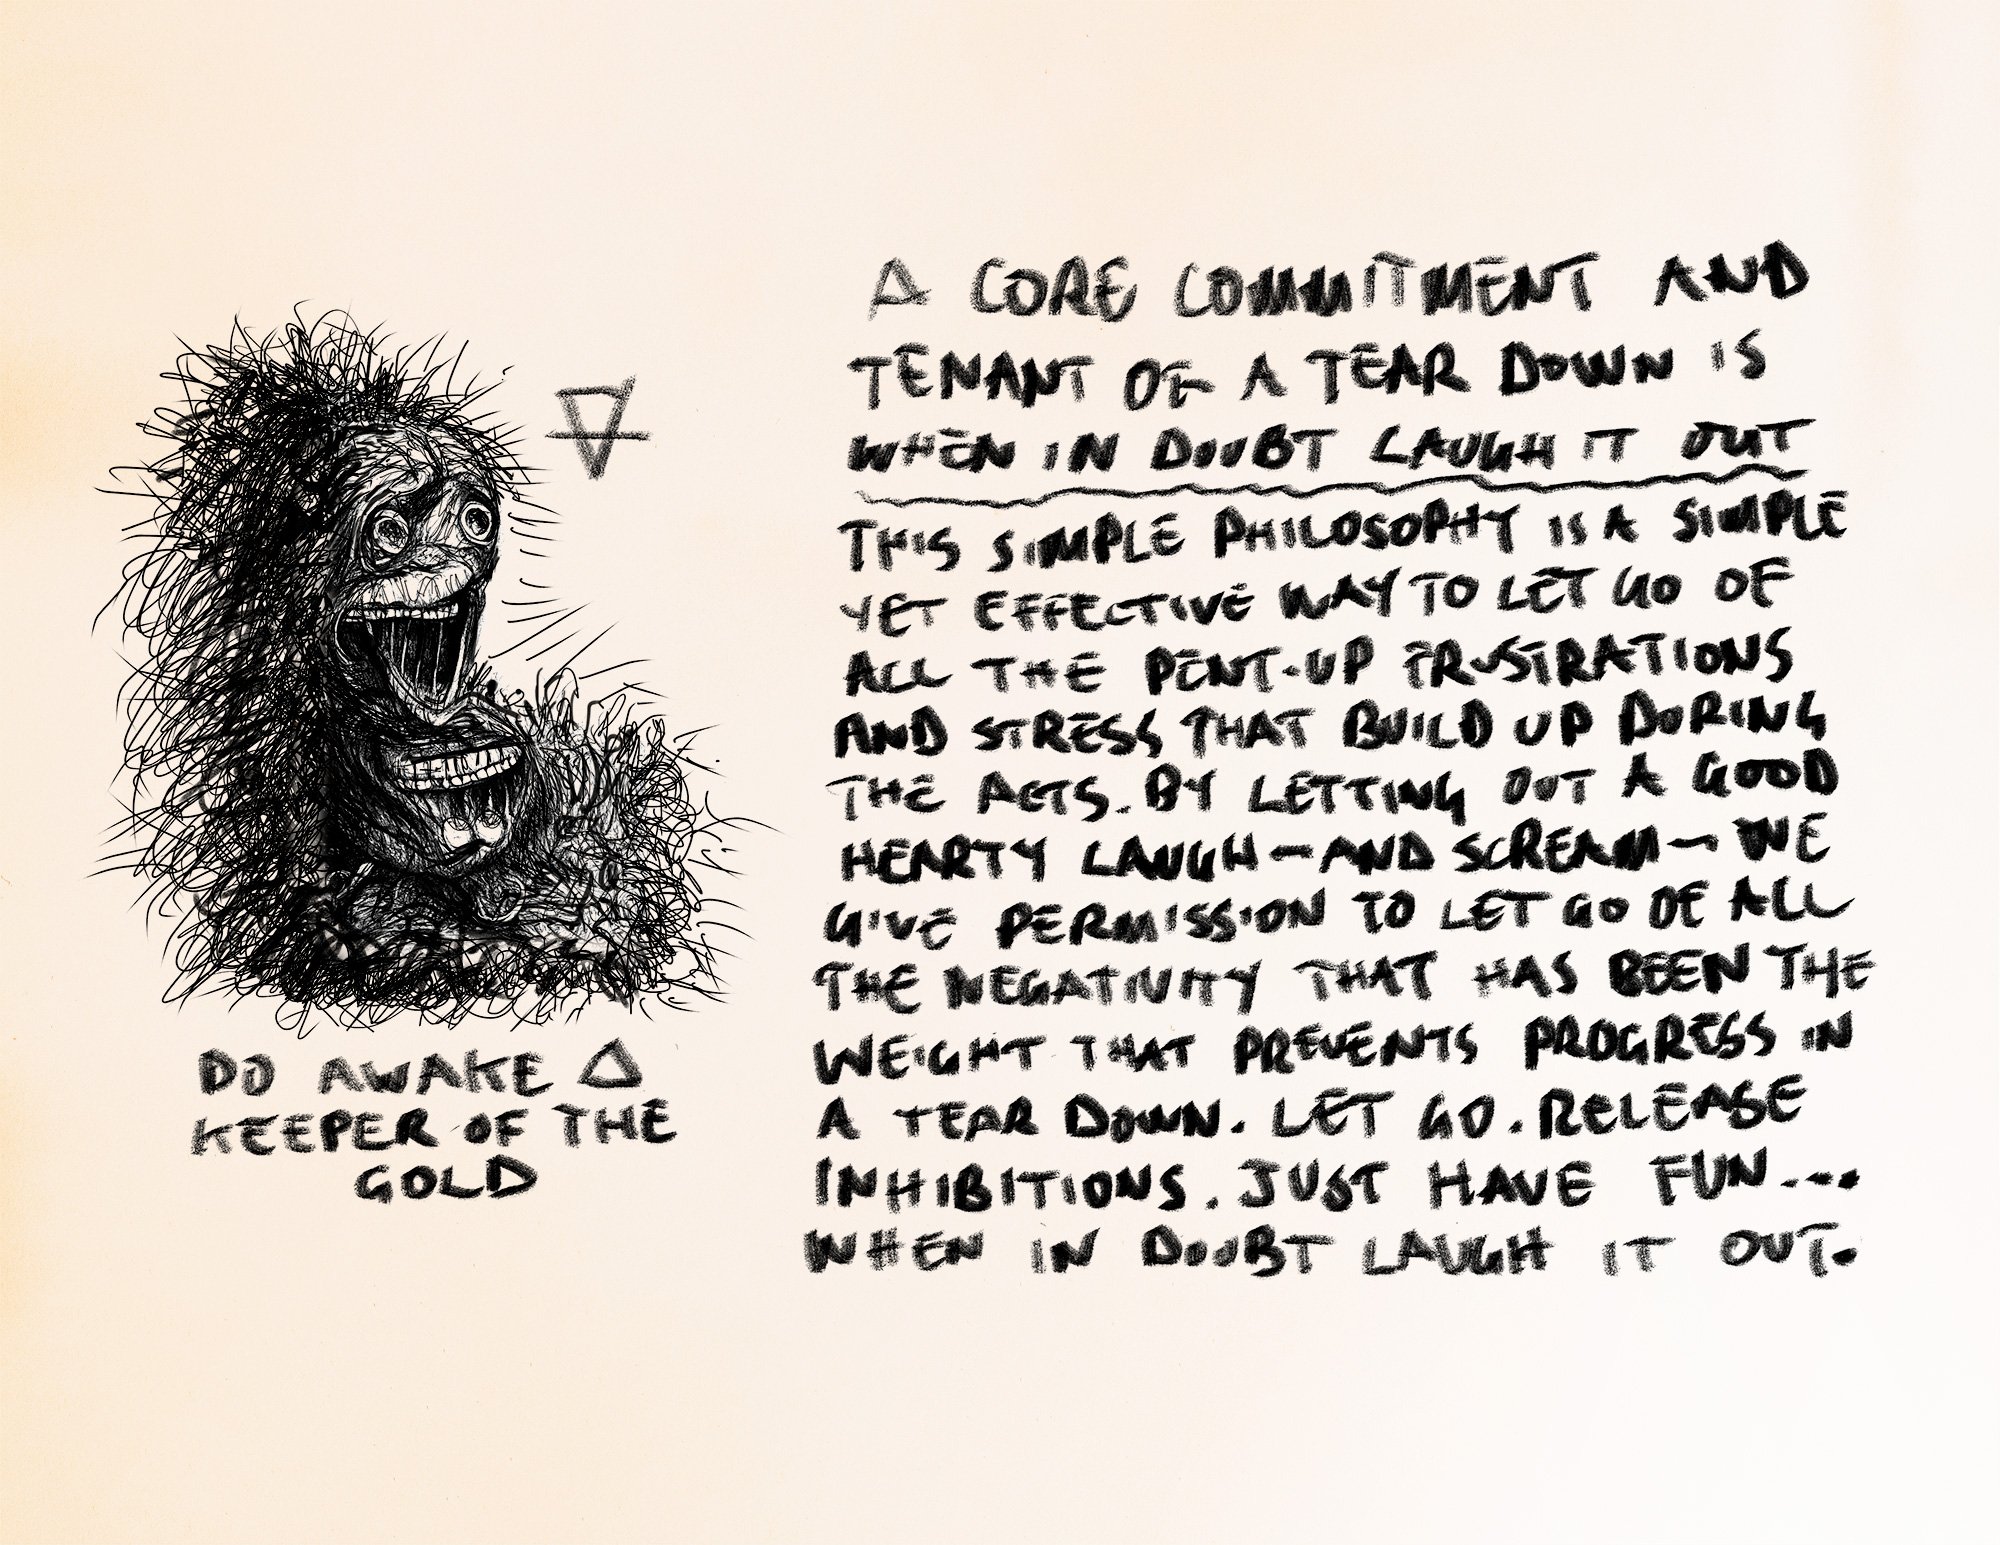 DO AWAKE △
KEEPER OF THE
GOLD
A CORE COMMITMENT AND
TENANT OF A TEAR DOWN IS
WHEN IN DOUBT LAUGH IT OUT
THIS SIMPLE PHILOSOPHY IS A SIMPLE
YET EFFECTIVE WAY TO LET GO OF
ALL THE PENT-UP FRUSTRATIONS
AND STRESS THAT BUILD UP DURING
THE ACTS. BY LETTING OUT A GOOD
HEARTY LAUGH - AND SCREAM - WE
GIVE PERMISSION TO LET GO OF ALL
THE NEGATIVITY THAT HAS BEEN THE
WEIGHT THAT PREVENTS PROGRESS IN
A TEAR DOWN. LET GO. RELEASE
INHIBITIONS. JUST HAVE FUN...
WHEN IN DOUBT LAUGH IT OUT.